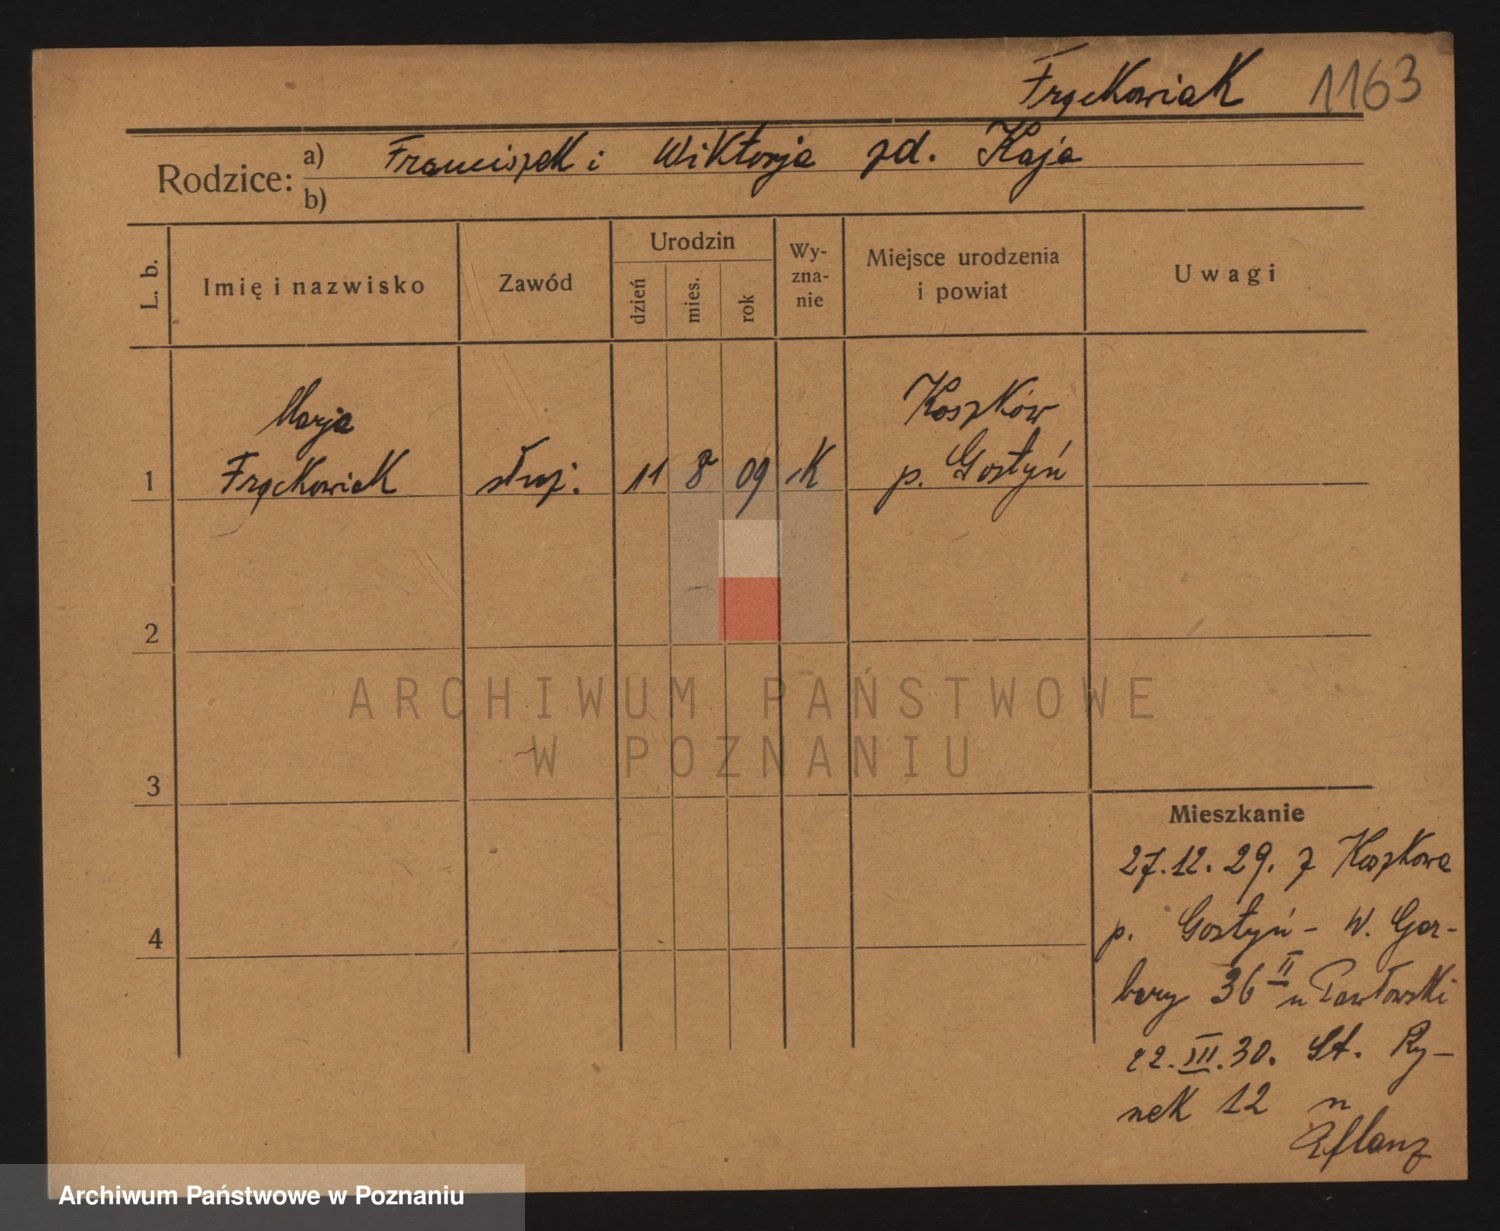 Frąckowiak 1163
Rodzice: a) Franciszek i Wiktorja zd. Kaja
b)
L. b. Imię i nazwisko Zawód Urodzin dzień mies. rok Wy-zna-nie Miejsce urodzenia i powiat Uwagi
Marja Koszków
1 Frąckowiak służ. 11 8 09 K p. Gostyń
2
ARCHIWUM PAŃSTWOWE
W POZNANIU
3
Mieszkanie
27.12.29. z Koszkowa
4 p. Gostyń - W. Gar-
bary 36 II u Pawłowski
22.III.30. St. Ry-
nek 12 u
Archiwum Państwowe w Poznaniu